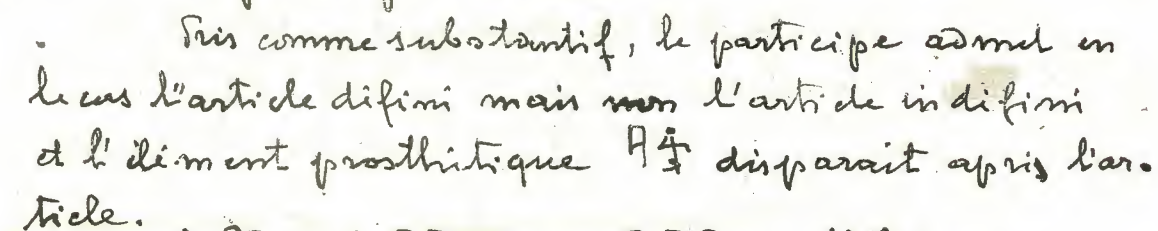 Pris comme substantif, le participe admet en
le cas l'article défini mais non l'article indéfini
et l'élément prosthétique disparait après l'ar-
ticle.